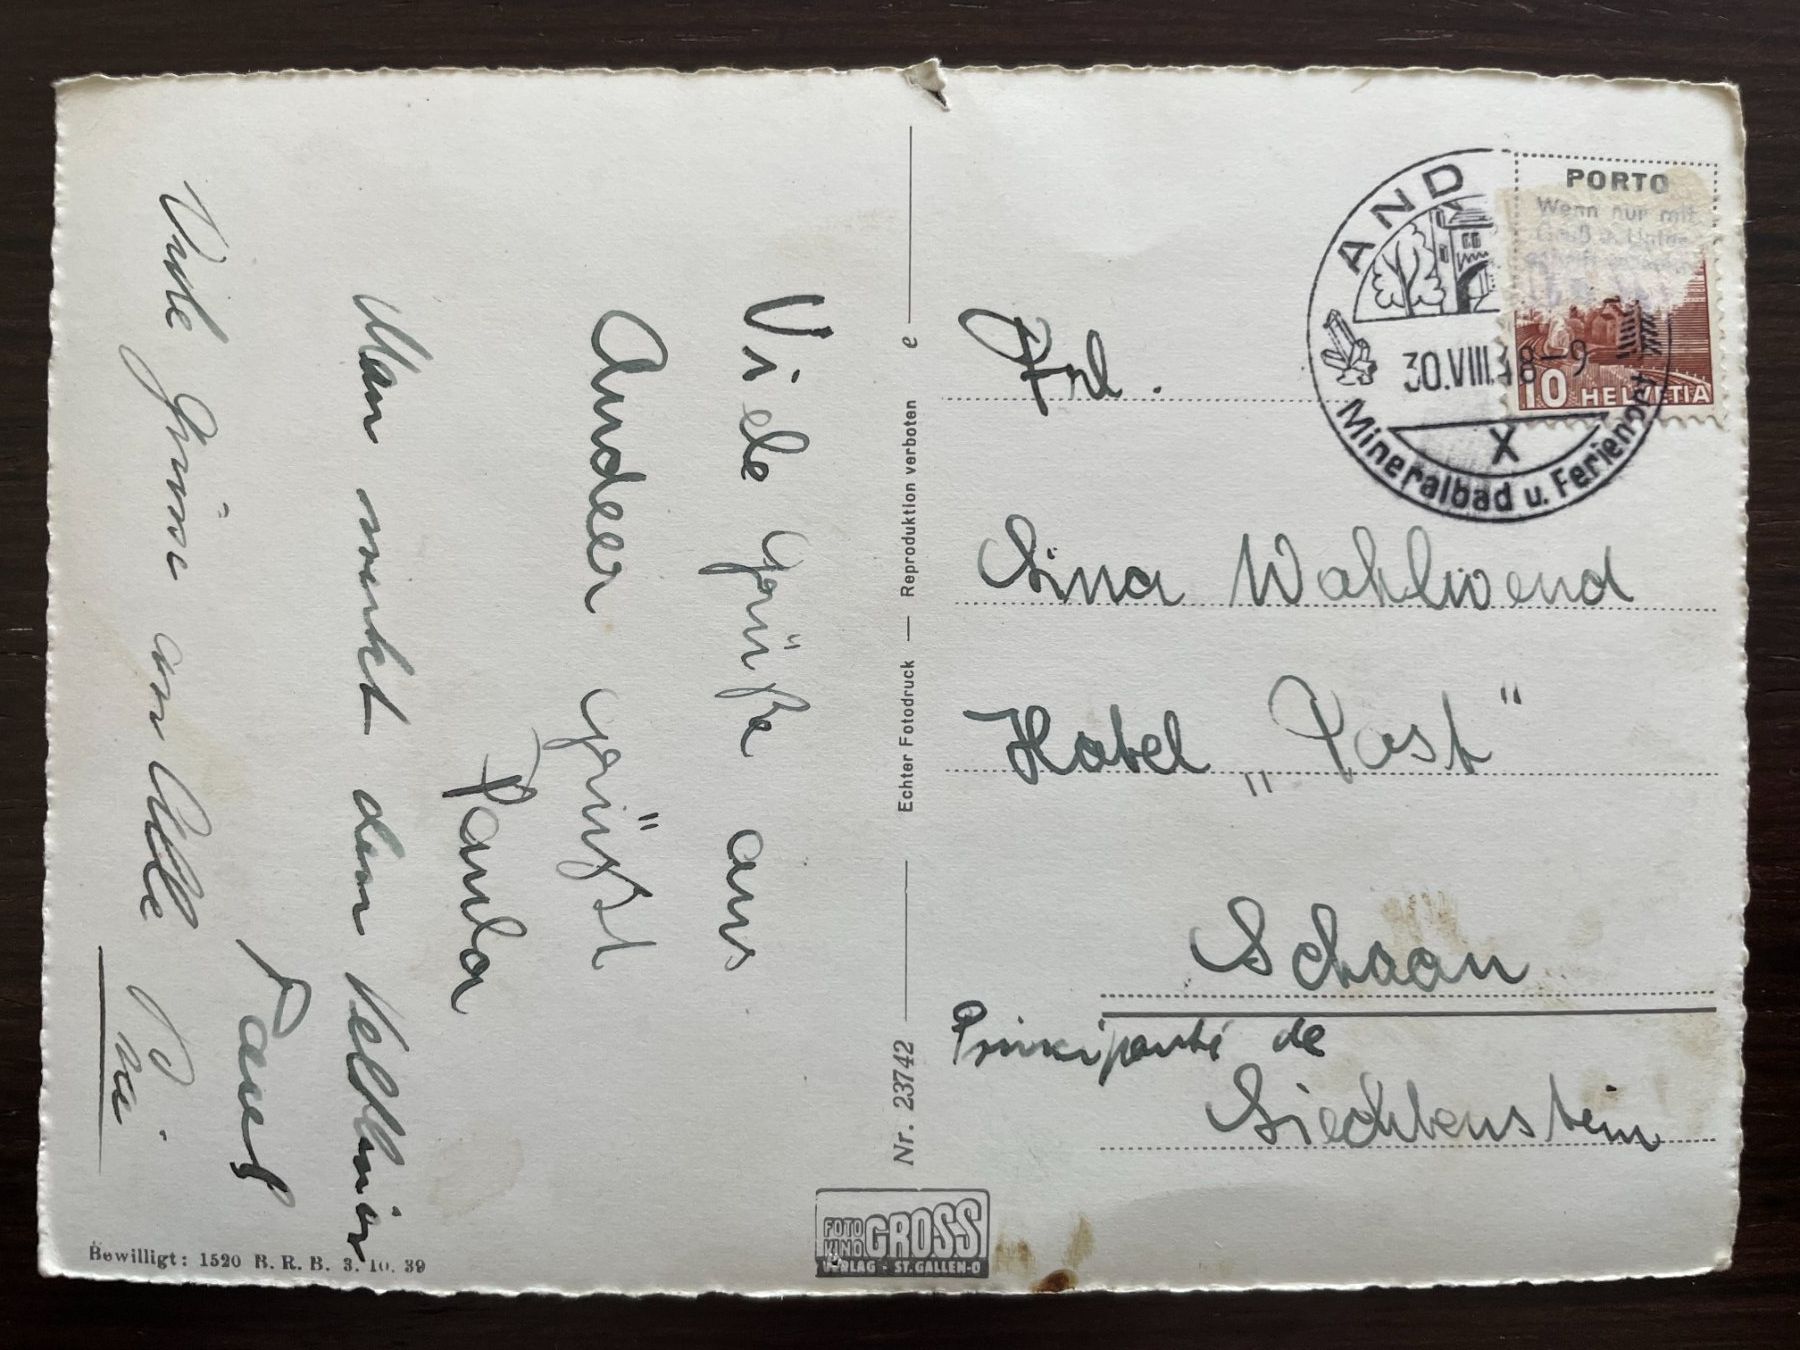 Viele Grüße aus
Andeer grüßt
Paula
Man merkt den Veltliner
Viele Grüsse an Alle
Frl.
Lina Wohlwend
Hotel „Post“
Schaan
Principauté de
Liechtenstein
Echter Fotodruck — Reproduktion verboten e
Nr. 23742
Bewilligt: 1520 B. R. B. 3. 10. 39
FOTO
KINO GROSS
VERLAG · ST. GALLEN-O
PORTO
Wenn nur mit
AND
30.VIII.48–9
Mineralbad u. Ferienort
X
10 HELVETIA